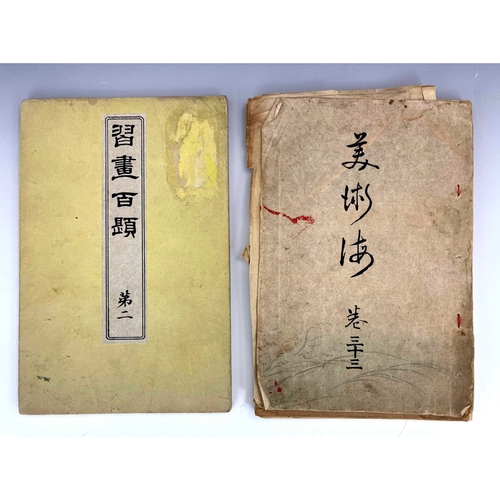 習畫百題
第二
美術海
卷三十三